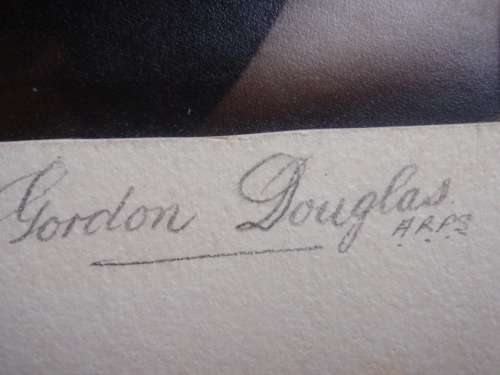 Gordon Douglas A.R.P.S